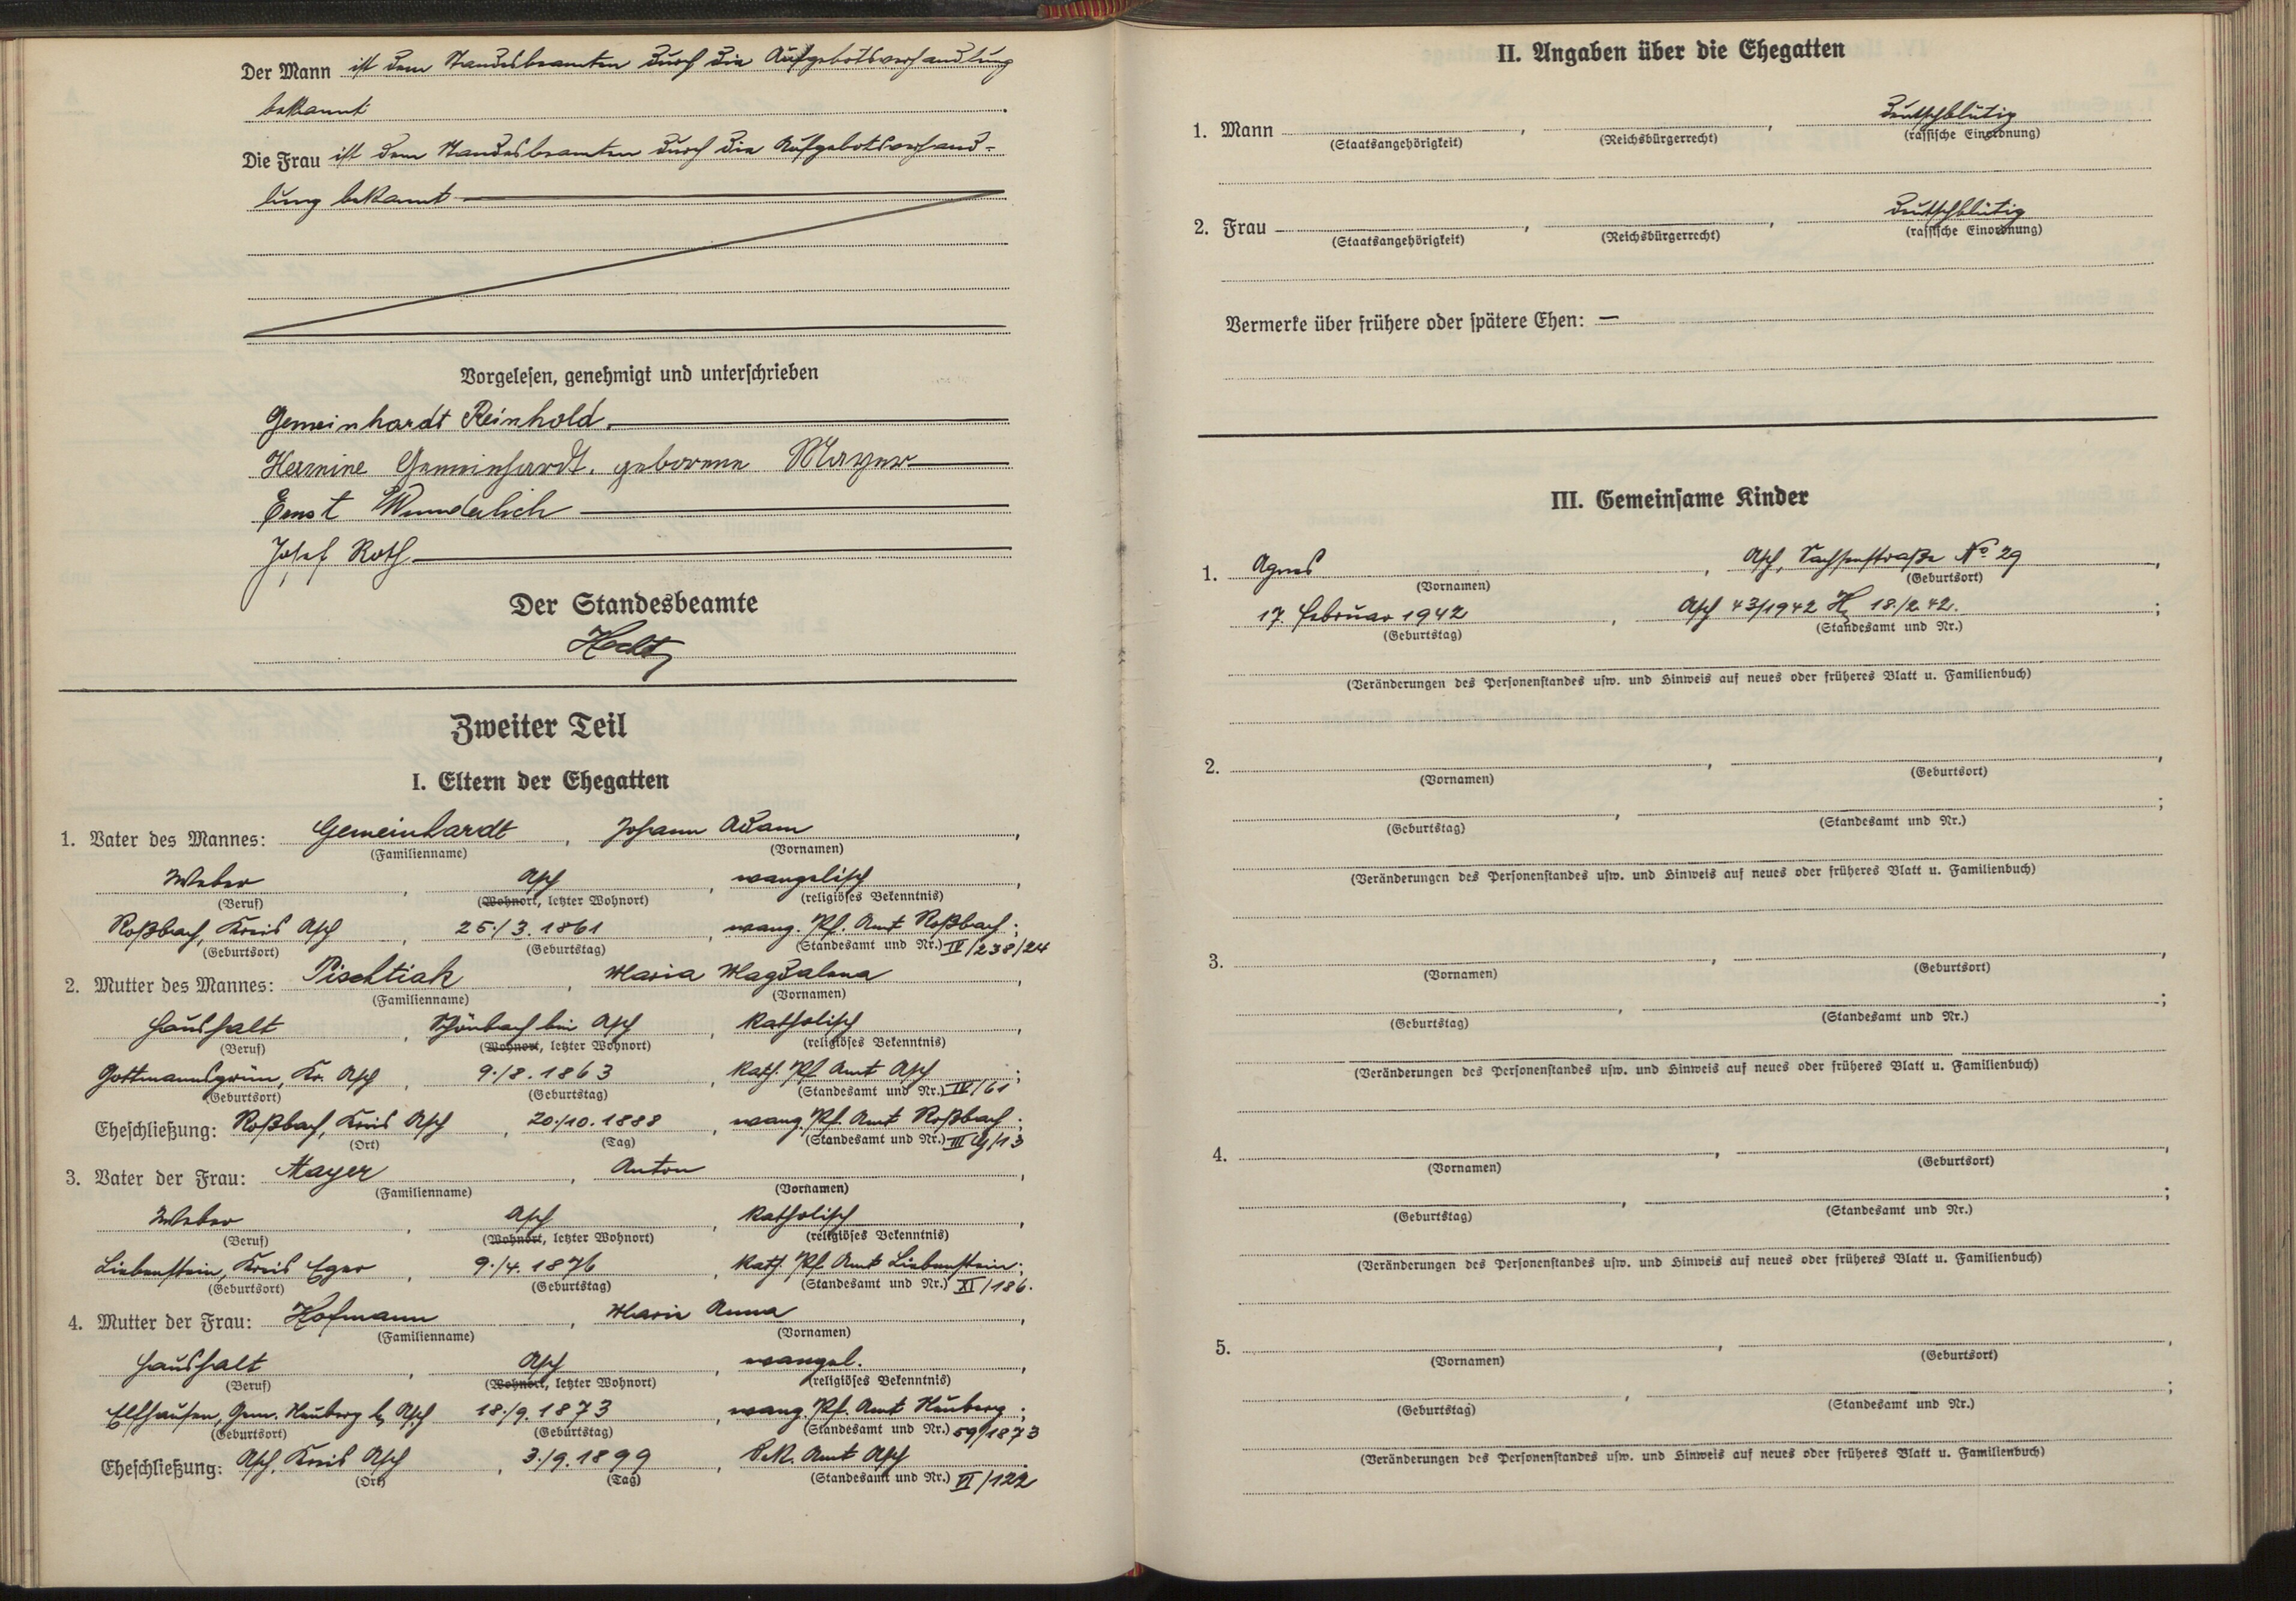 Der Mann ist dem Standesbeamten durch die Aufgebotsverhandlung
bekannt
Die Frau ist dem Standesbeamten durch die Aufgebotsverhand-
lung bekannt
Vorgelesen, genehmigt und unterschrieben
Gemeinhardt Reinhold.
Hermine Gemeinhardt. geborene Mayer
Ernst Wunderlich
Josef Roth
Der Standesbeamte
Zweiter Teil
I. Eltern der Ehegatten
1. Vater des Mannes: Gemeinhardt, Johann Adam,
(Familienname) (Vornamen)
Weber, Asch, evangelisch,
(Beruf) (Wohnort, letzter Wohnort) (religiöses Bekenntnis)
Roßbach, Kreis Asch, 25./3. 1861, evang. Pf. Amt Roßbach;
(Geburtsort) (Geburtstag) (Standesamt und Nr.) IV/238/24
2. Mutter des Mannes: Pischtiak, Maria Magdalena,
(Familienname) (Vornamen)
Haushalt, Schönbach bei Asch, katholisch,
(Beruf) (Wohnort, letzter Wohnort) (religiöses Bekenntnis)
Gottmannsgrün, Kr. Asch, 9./8. 1863, kath. Pf. Amt Asch;
(Geburtsort) (Geburtstag) (Standesamt und Nr.) IV/61
Eheschließung: Roßbach, Kreis Asch, 20./10. 1888, evang. Pf. Amt Roßbach;
(Ort) (Tag) (Standesamt und Nr.)
3. Vater der Frau: Mayer, Anton,
(Familienname) (Vornamen)
Weber, Asch, katholisch,
(Beruf) (Wohnort, letzter Wohnort) (religiöses Bekenntnis)
Liebenstein, Kreis Eger, 9./4. 1876, kath. Pf. Amt Liebenstein;
(Geburtsort) (Geburtstag) (Standesamt und Nr.) XI/186.
4. Mutter der Frau: Hofmann, Marie Anna,
(Familienname) (Vornamen)
Haushalt, Asch, evangel.,
(Beruf) (Wohnort, letzter Wohnort) (religiöses Bekenntnis)
Elfhausen, Gem. Neuberg b. Asch 18./9. 1873, evang. Pf. Amt Neuberg;
(Geburtsort) (Geburtstag) (Standesamt und Nr.) 59/1873
Eheschließung: Asch, Kreis Asch, 3./9. 1899, Amt Asch
(Ort) (Tag) (Standesamt und Nr.) VI/122
II. Angaben über die Ehegatten
1. Mann , , deutschblütig
(Staatsangehörigkeit) (Reichsbürgerrecht) (rassische Einordnung)
2. Frau , , deutschblütig
(Staatsangehörigkeit) (Reichsbürgerrecht) (rassische Einordnung)
Vermerke über frühere oder spätere Ehen: —
III. Gemeinsame Kinder
1. Agnes, Asch, Sachsenstraße No 29,
(Vornamen) (Geburtsort)
17. Februar 1942, Asch 43/1942 18./2. 42.;
(Geburtstag) (Standesamt und Nr.)
(Veränderungen des Personenstandes usw. und Hinweis auf neues oder früheres Blatt u. Familienbuch)
2. , ,
(Vornamen) (Geburtsort)
, ;
(Geburtstag) (Standesamt und Nr.)
(Veränderungen des Personenstandes usw. und Hinweis auf neues oder früheres Blatt u. Familienbuch)
3. , ,
(Vornamen) (Geburtsort)
, ;
(Geburtstag) (Standesamt und Nr.)
(Veränderungen des Personenstandes usw. und Hinweis auf neues oder früheres Blatt u. Familienbuch)
4. , ,
(Vornamen) (Geburtsort)
, ;
(Geburtstag) (Standesamt und Nr.)
(Veränderungen des Personenstandes usw. und Hinweis auf neues oder früheres Blatt u. Familienbuch)
5. , ,
(Vornamen) (Geburtsort)
, ;
(Geburtstag) (Standesamt und Nr.)
(Veränderungen des Personenstandes usw. und Hinweis auf neues oder früheres Blatt u. Familienbuch)